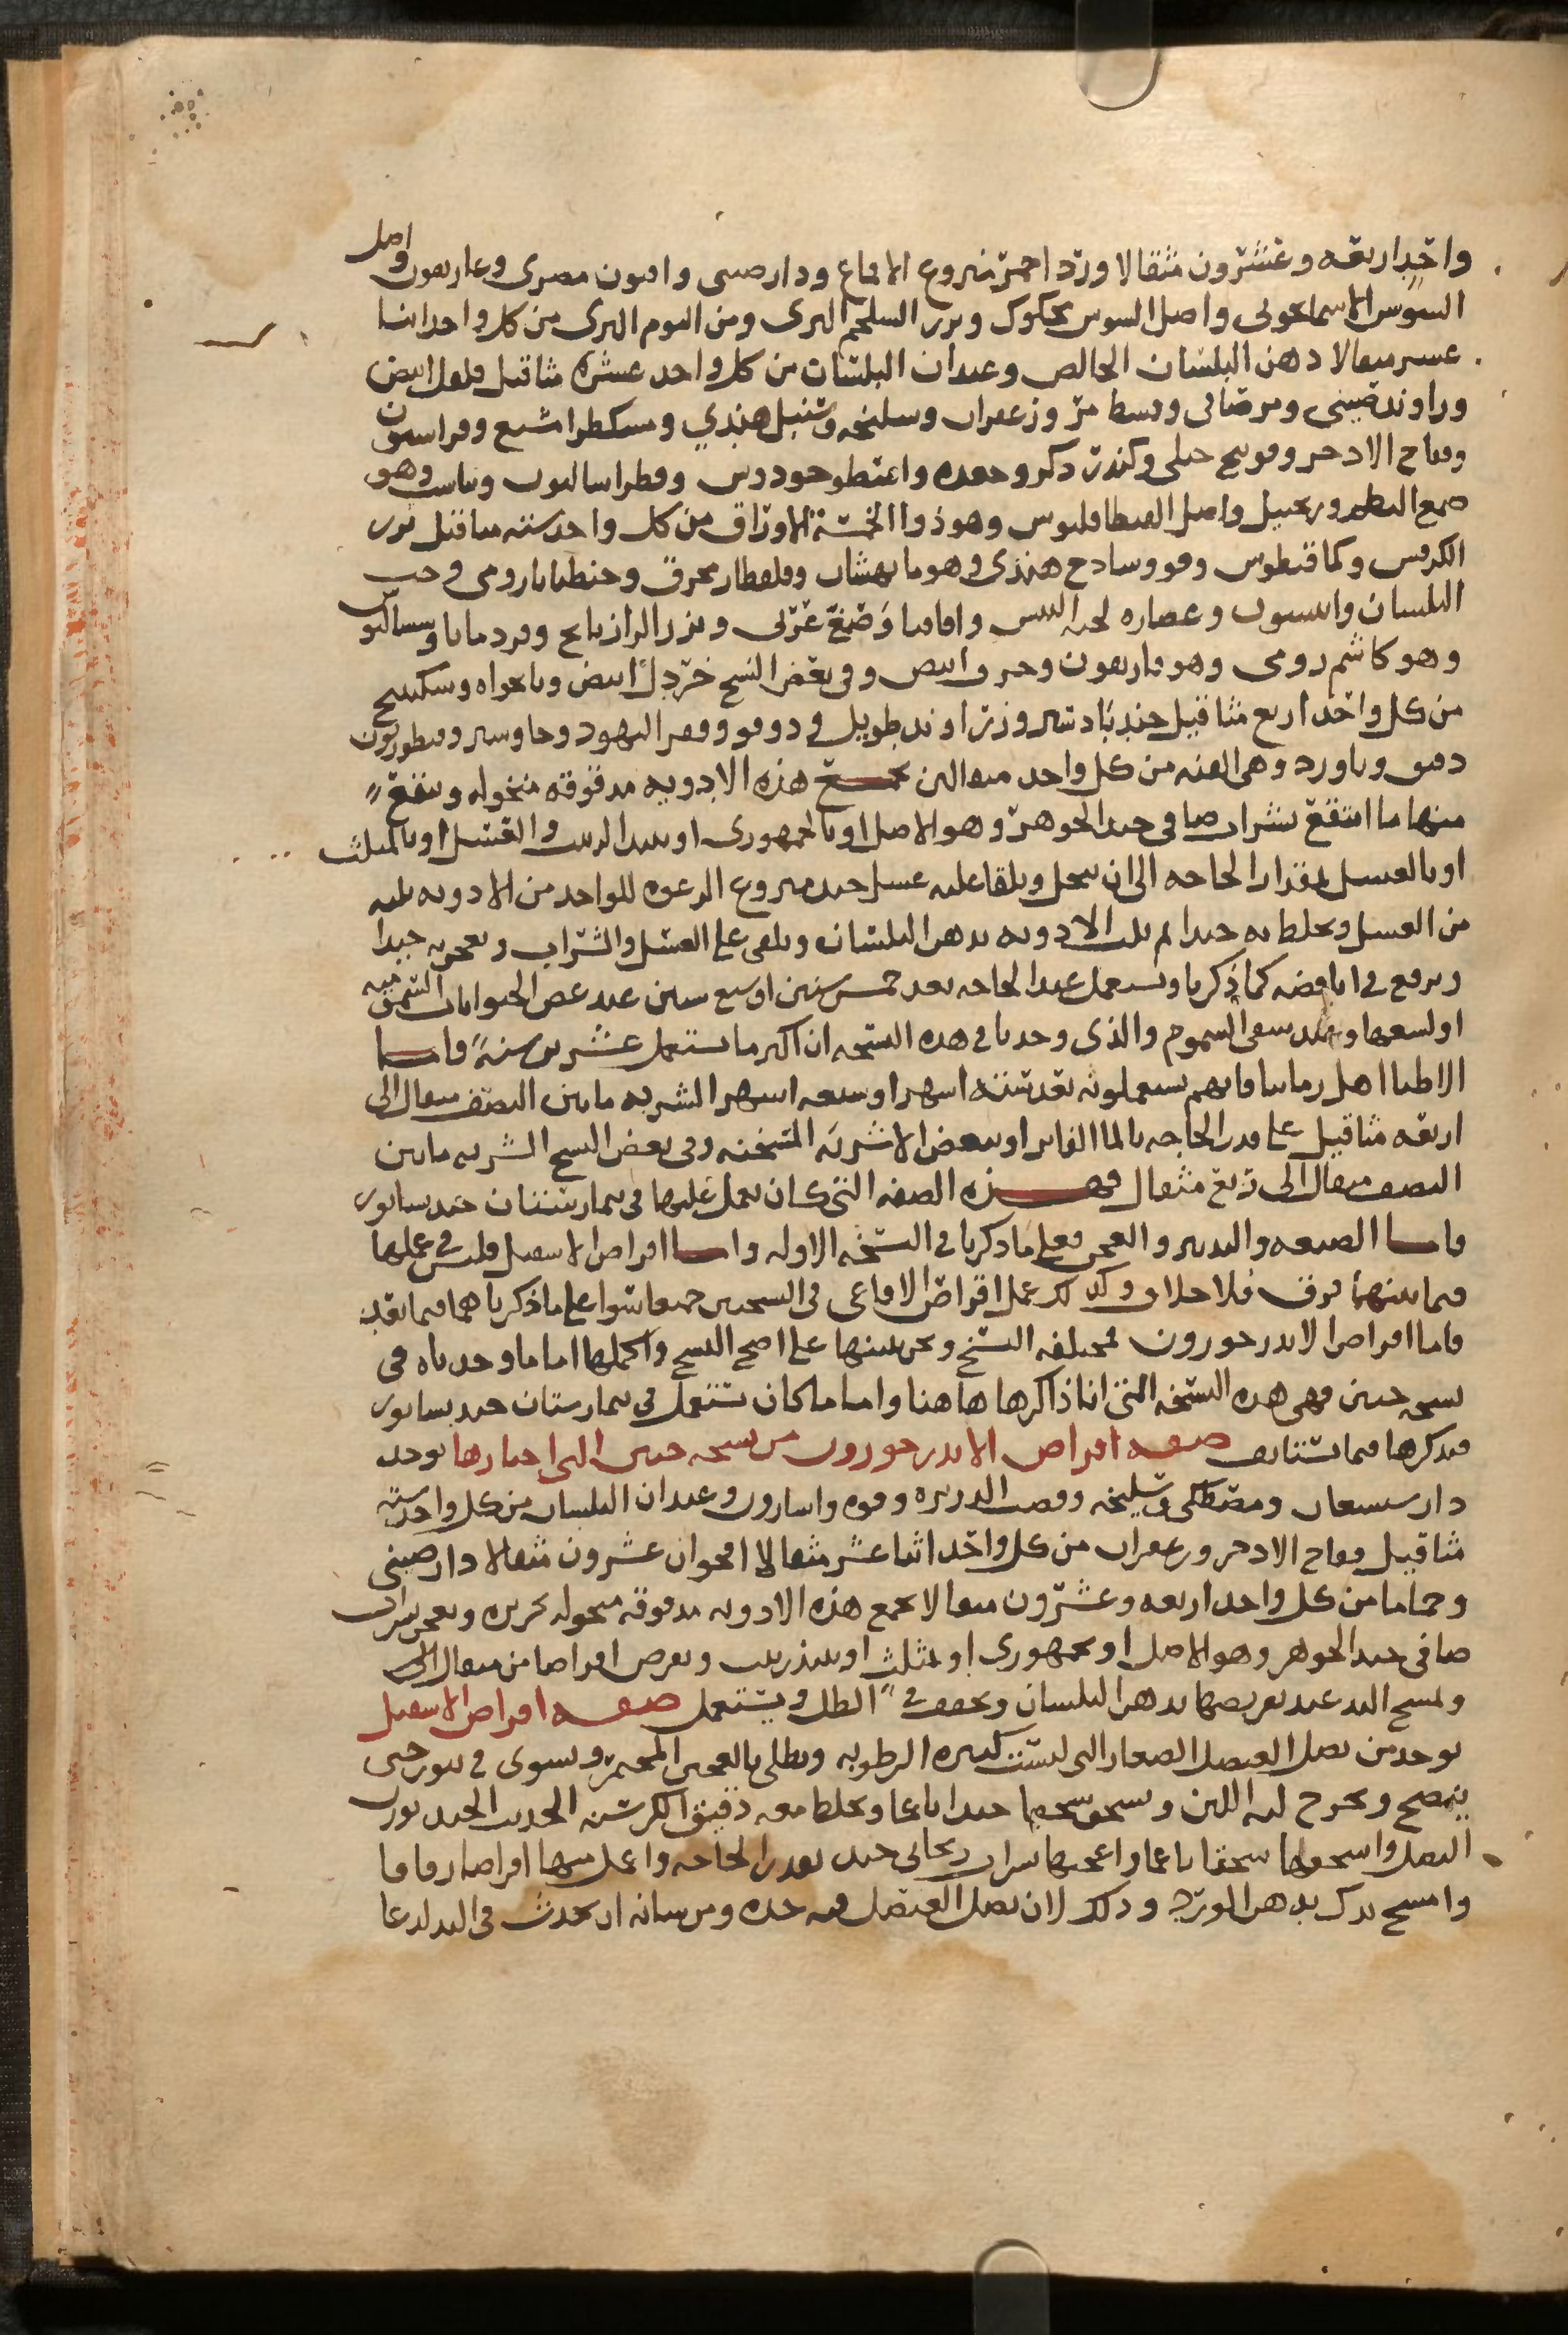 واحد اربعه وعشرون مثقالا ورد احمر منزوع الاقماع ودارصينى وافيون مصرى وغاريقون واصل
السوس الاسمانجونى واصل السوس محكوك وبزر السلجم البرى ومن الثوم البرى من كل واحد اثنا
عشر مثقالا دهن البلسان الخالص وعيدان البلسان من كل واحد عشره مثاقيل فلفل ابيض
وراوند صينى ومرصافى وقسط مر وزعفران وسليخه وسنبل هندي ومسكطرا مشيع وفراسيون
وفقاح الاذخر وفودنج جبلى وكندر ذكر وجعده واسطوخودوس وفطراساليون ونانسب وهو
صمغ البطم وزنجبيل واصل القنطافليوس وهو ذوا الخمسة الاوراق من كل واحد سته مثاقيل بزر
الكرفس وكمافيطوس وفو وسادج هندى وهو مابهشان وقلقطار محرق وجنطيانا رومى وحب
البلسان وانيسون وعصاره لحيه التيس واقاقيا وصمغ عربى وبزر الرازيانج وقردمانا وسساليوس
وهو كاشم رومى وهوفاريقون وحرف ابيض وفى بعض النسخ خردل ابيض ونانخواه وسكبينج
من كل واحد اربع مثاقيل جندبادستر وزراوند طويل ودوقو وقفر اليهود وجاوشير وقنطوريون
دقيق وبارزد وهى القنه من كل واحد مثقالين تجمع هذه الادويه مدقوقه منخوله وينقع
منها ما انتقع بشراب صافى جيد الجوهر وهو الاصل او بالجمهورى او نبيد الزبيب والعسل او بالمثلث
او بالعسل بمقدار الحاجه الى ان ينحل ويلقا عليه عسل جيد منزوع الرغوه للواحد من الادويه ثلثه
من العسل ويخلط به جيدا ثم يلت الادويه بدهن البلسان ويلقى على العسل والشراب ويعجن به جيدا
ويرفع فى انا فضه كما ذكرنا ويستعمل عند الحاجه بعد خمس سنين او سبع سنين عند عض الحيوانات السميه
او لسعها وعند سقى السموم والذى وجدنا فى هذه النسخه ان اكثر ما يستعمل عشرين سنة واما
الاطبا اهل زماننا فانهم يستعملونه بعد سته اشهر او سبعه اشهر الشربه ما بين النصف مثقال الى
اربعه مثاقيل على قدر الحاجه بالما الفاتر او ببعض الاشربه المسخنه وفى بعض النسخ الشربه ما بين
النصف مثقال الى ربع مثقال فهذه الصفه التى كان يعمل عليها فى بيمارستان جنديسابور
واما الصنعه والتدبير والعجن فعلى ما ذكرنا فى النسخه الاوله واما اقراص الاسقيل فليس فى عملها
فيما بينهما فرق فلا خلاف وكذلك عمل اقراص الافاعى فى النسختين جميعا سوا على ما ذكرناهما فيما تقدم
فاما اقراص الاندرخورون فمختلفه النسخ ونحن نبينها على اصح النسخ واكملها اما ما وجدناه فى
نسخه حنين فهى هذه النسخه التى انا ذاكرها هاهنا واما ما كان يستعمل فى بيمارستان جنديسابور
فنذكرها فيما يستانف صفه اقراص الاندرخورون من نسخه حنين التى اختارها يوخذ
دارشيشعان ومصطكى وسليخه وقصب الذريره وفوه واسارون وعيدان البلسان من كل واحد سته
مثاقيل فقاح الاذخر وزعفران من كل واحد اثنا عشر مثقالا اقحوان عشرون مثقالا دارصينى
وحماما من كل واحد اربعه وعشرون مثقالا تجمع هذه الادويه مدقوقه منخوله بحريره ويعجن بشراب
صافى جيد الجوهر وهو الاصل او بجمهورى او بمثلث او نبيذ زبيب ويقرص اقراصا من مثقال الى
ولمسح اليد عند تقريصها بدهن البلسان ويجفف فى الظل ويستعمل صفه اقراص الاسقيل
يوخذ من بصل العنصل الصغار التى ليست كثيره الرطوبه ويطلى بالعجين المختمر ويشوى فى تنور حتى
ينضج ويخرج لبه اللين ويسحق سحقا جيدا ناعما ويخلط معه دقيق الكرسنه الحديث الجيد بوزن
البصل واسحقها سحقا ناعما واعجنها بشراب ريحانى جيد بقدر الحاجه واعمل منها اقراصا رقاقا
وامسح يدك بدهن الورد وذلك لان بصل العنصل فيه حده ومن شانه ان يحدث فى اليد لدغا